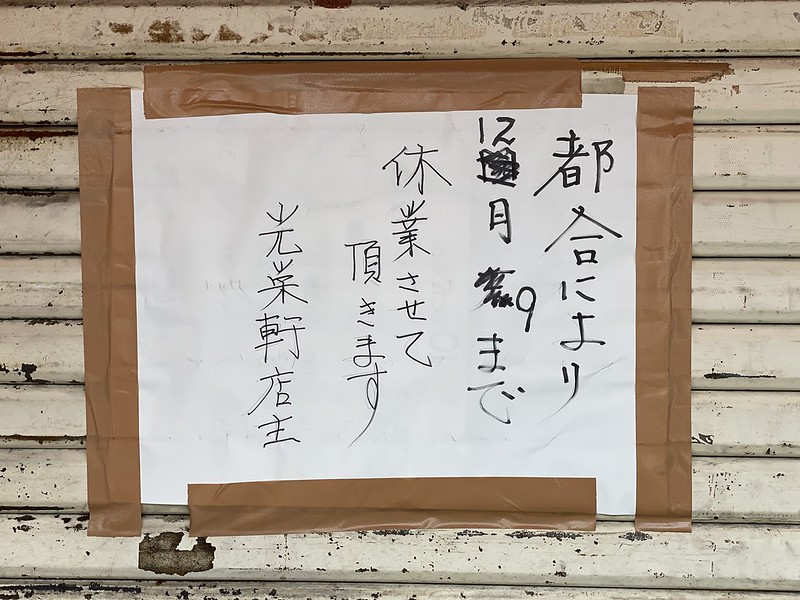 都合により
12月9まで
休業させて
頂きます
光栄軒店主